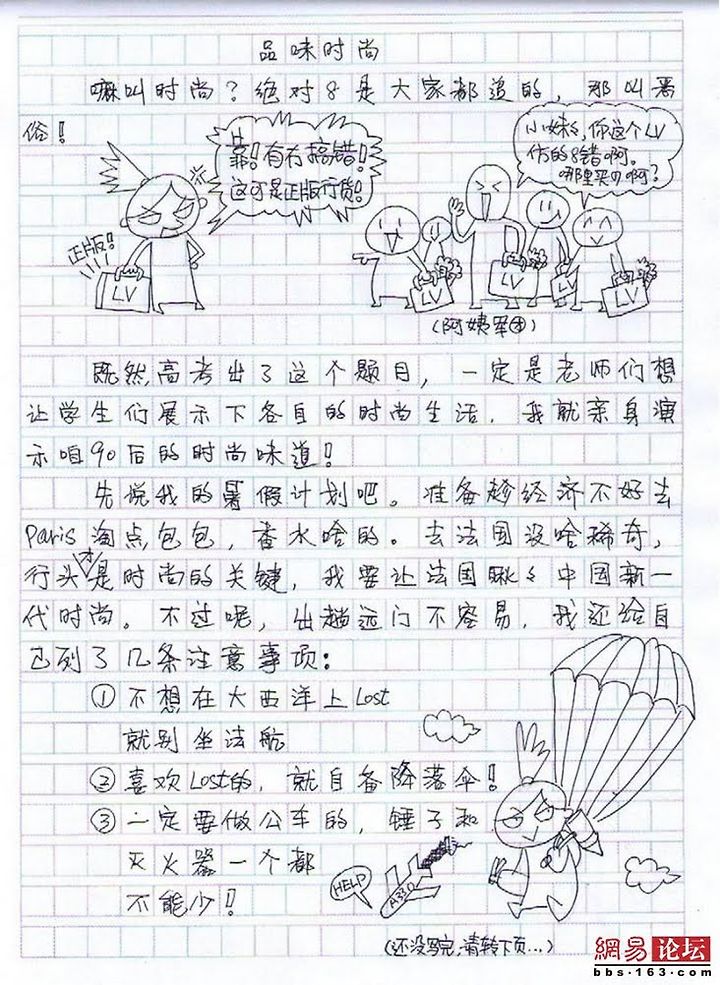 品味时尚
嘛叫时尚？绝对8是大家都追的，那叫恶
俗！
靠！有冇搞错！
这可是正版行货！
小妹々，你这个LV
仿的8错啊。
哪里买D啊？
正版！
LV
LV
LV
LV
LV
(阿姨军团)
既然高考出了这个题目，一定是老师们想
让学生们展示下各自的时尚生活．我就亲身演
示咱90后的时尚味道！
先说我的暑假计划吧。准备趁经济不好去
Paris淘点包包，香水啥的。去法国没啥稀奇，
行头才是时尚的关键，我要让法国瞅々中国新一
代时尚。不过呢，出趟远门不容易，我还给自
己列了几条注意事项：
①不想在大西洋上Lost
就别坐法航
②喜欢Lost的，就自备降落伞！
③一定要做公车的，锤子和
灭火器一个都
不能少！
HELP
A330
(还没写完，请转下页...)
網易论坛
bbs·163.com